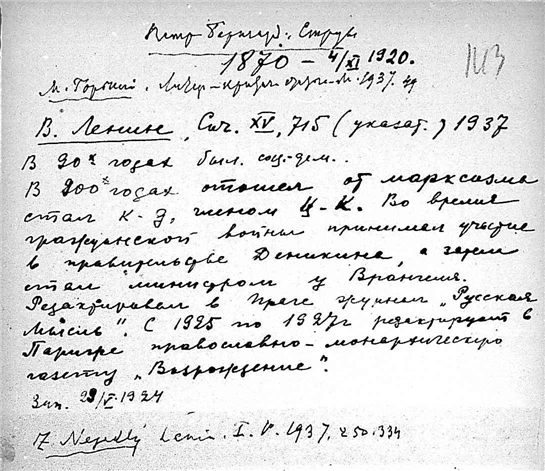 Петр Бернгард. Струве
1870 – 4/XI 1920.
1113
М. Горький. 1937.
В. Ленин, Соч. XV, 715 (указат.) 1937
В 90х годах был соц-дем..
В 900х годах отошел от марксизма
стал к-д, членом Ц-К. Во время
гражданской войны принимал участие
в правительстве Деникина, а затем
стал министром у Врангеля.
Редактировал в Праге журнал „Русская
Мысль". С 1925 по 1927г редактирует в
Париже православно-монархическую
газету „Возрождение".
Зап. 29/V 1924
Z Nejedlý Lenin. I. V. 1937. 250.334